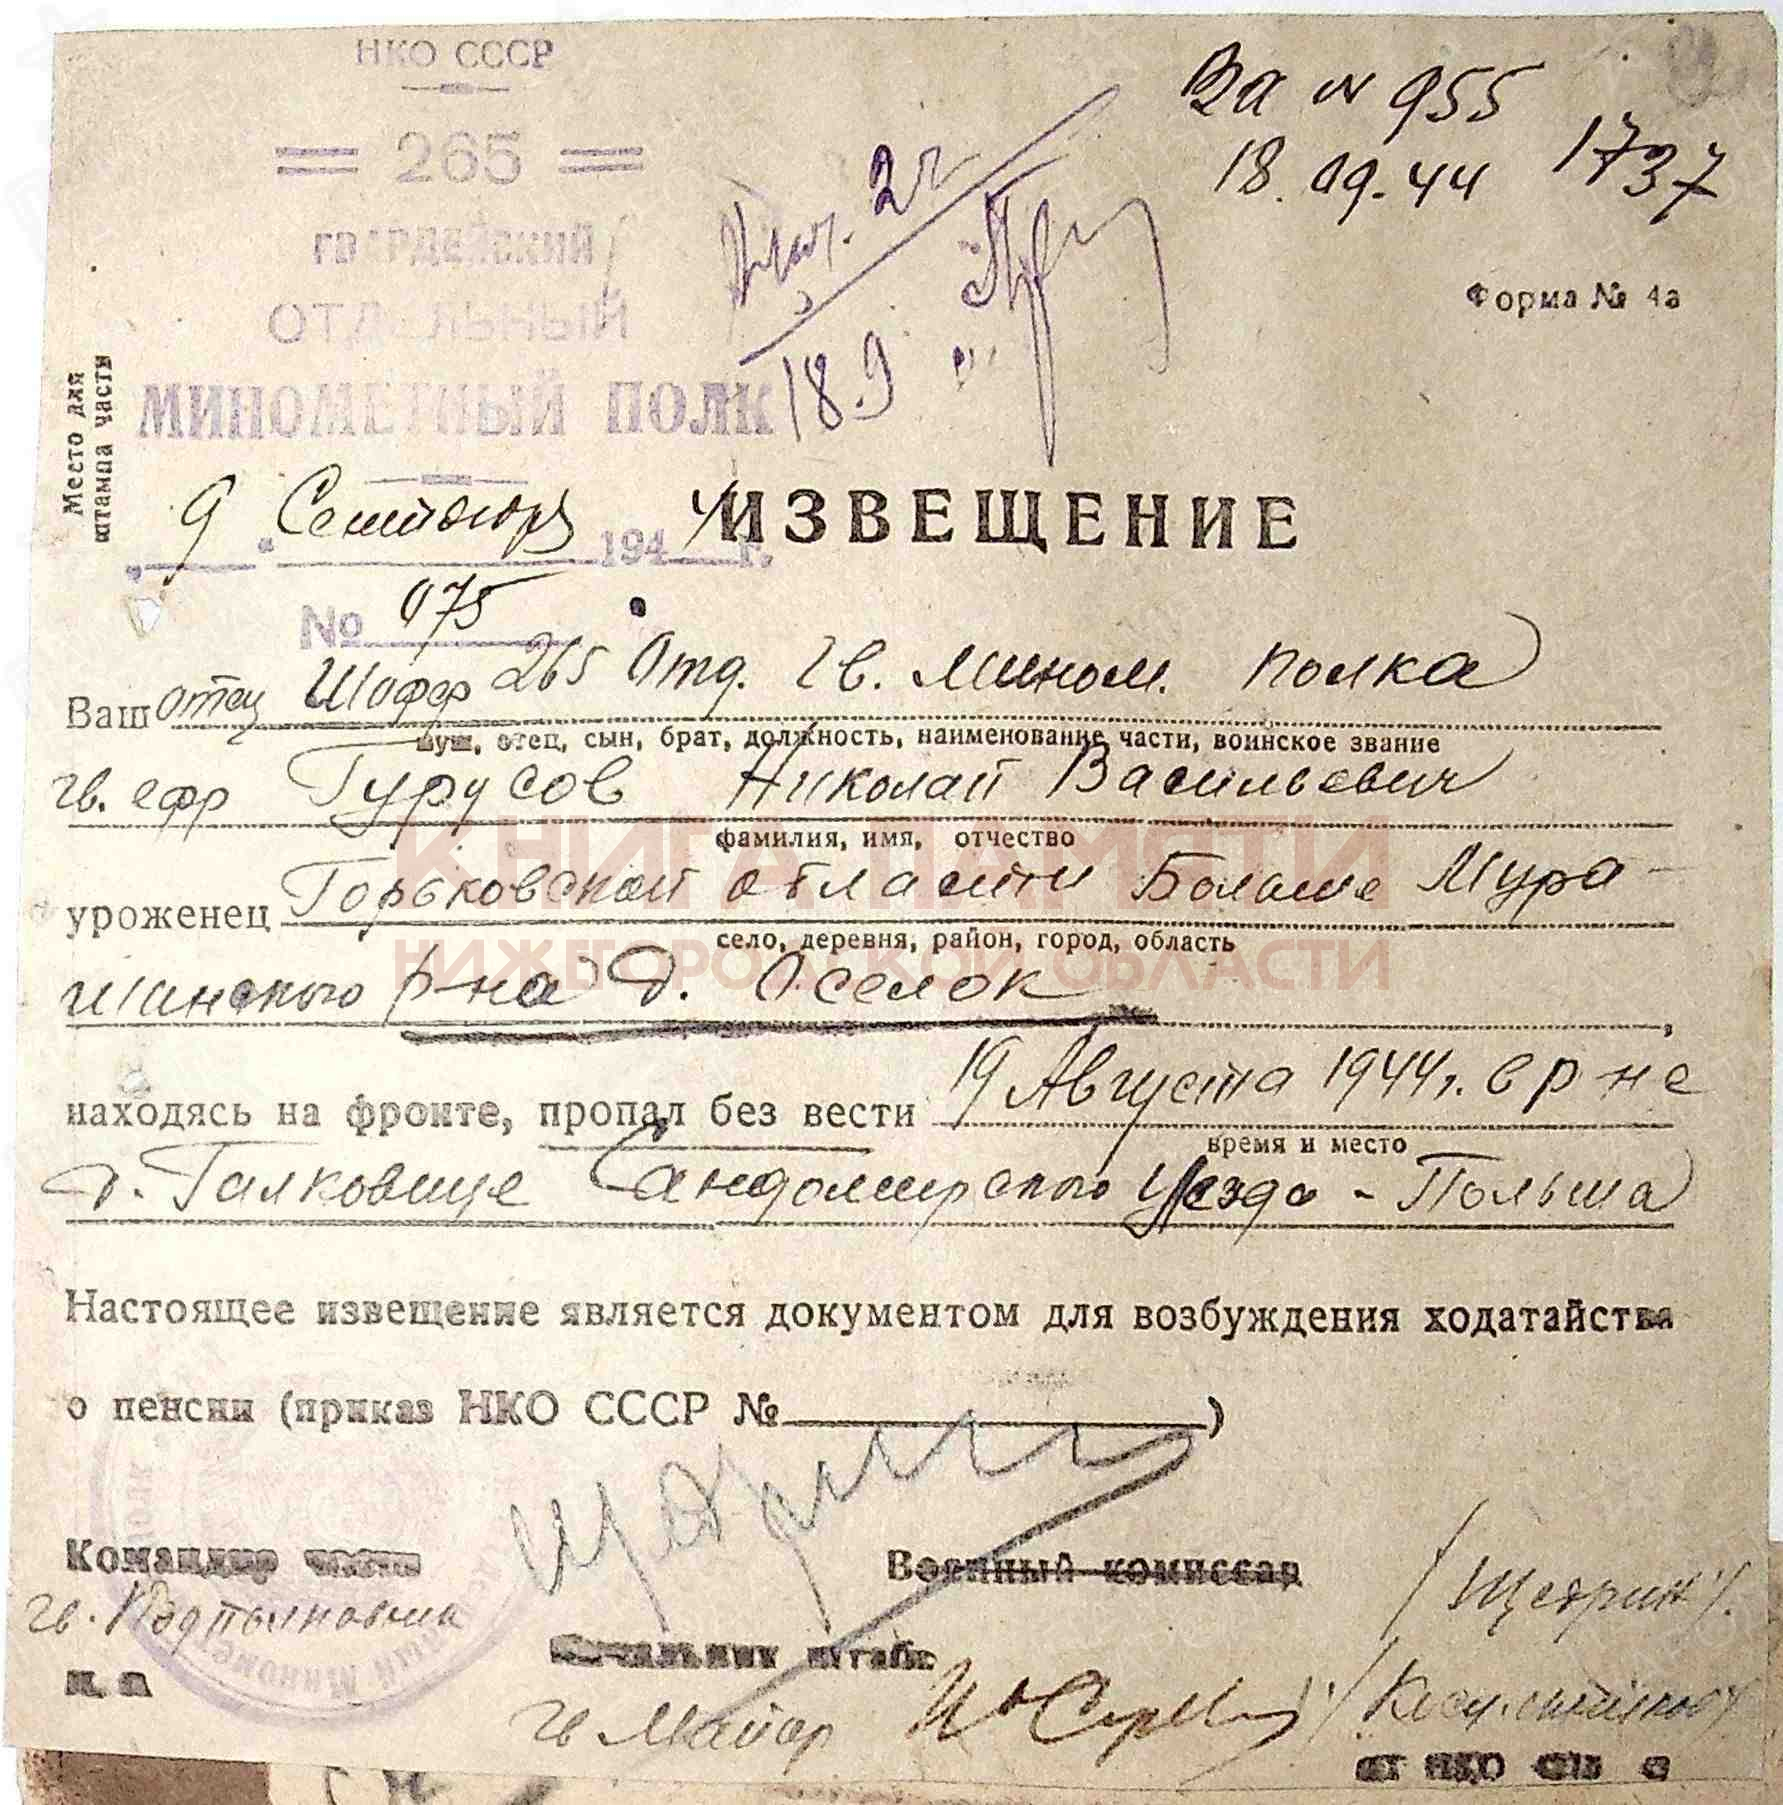 НКО СССР
265
ГВАРДЕЙСКИЙ
ОТДЕЛЬНЫЙ
МИНОМЕТНЫЙ ПОЛК
Вх № 955
18.09.44 1737
2г
18.9
Форма № 4а
Место для
штампа части
„9“ Сентября 1944 г.
ИЗВЕЩЕНИЕ
№ 075
Ваш отец Шофер 265 Отд. Гв. Мином. полка
муж, отец, сын, брат, должность, наименование части, воинское звание
гв. ефр Гурусов Николай Васильевич
фамилия, имя, отчество
уроженец Горьковской области Больше Мура-
село, деревня, район, город, область
шинского р-на д. Оселок,
находясь на фронте, пропал без вести 19 Августа 1944г. в р-не
время и место
д. Галковице Сандомирского Уезда - Польша
Настоящее извещение является документом для возбуждения ходатайства
о пенсии (приказ НКО СССР № )
Командир части
Военный комиссар
/Щетрин/.
гв. Подполковник
Начальник штаба
м. п.
гв Майор
КНИГА ПАМЯТИ
НИЖЕГОРОДСКОЙ ОБЛАСТИ